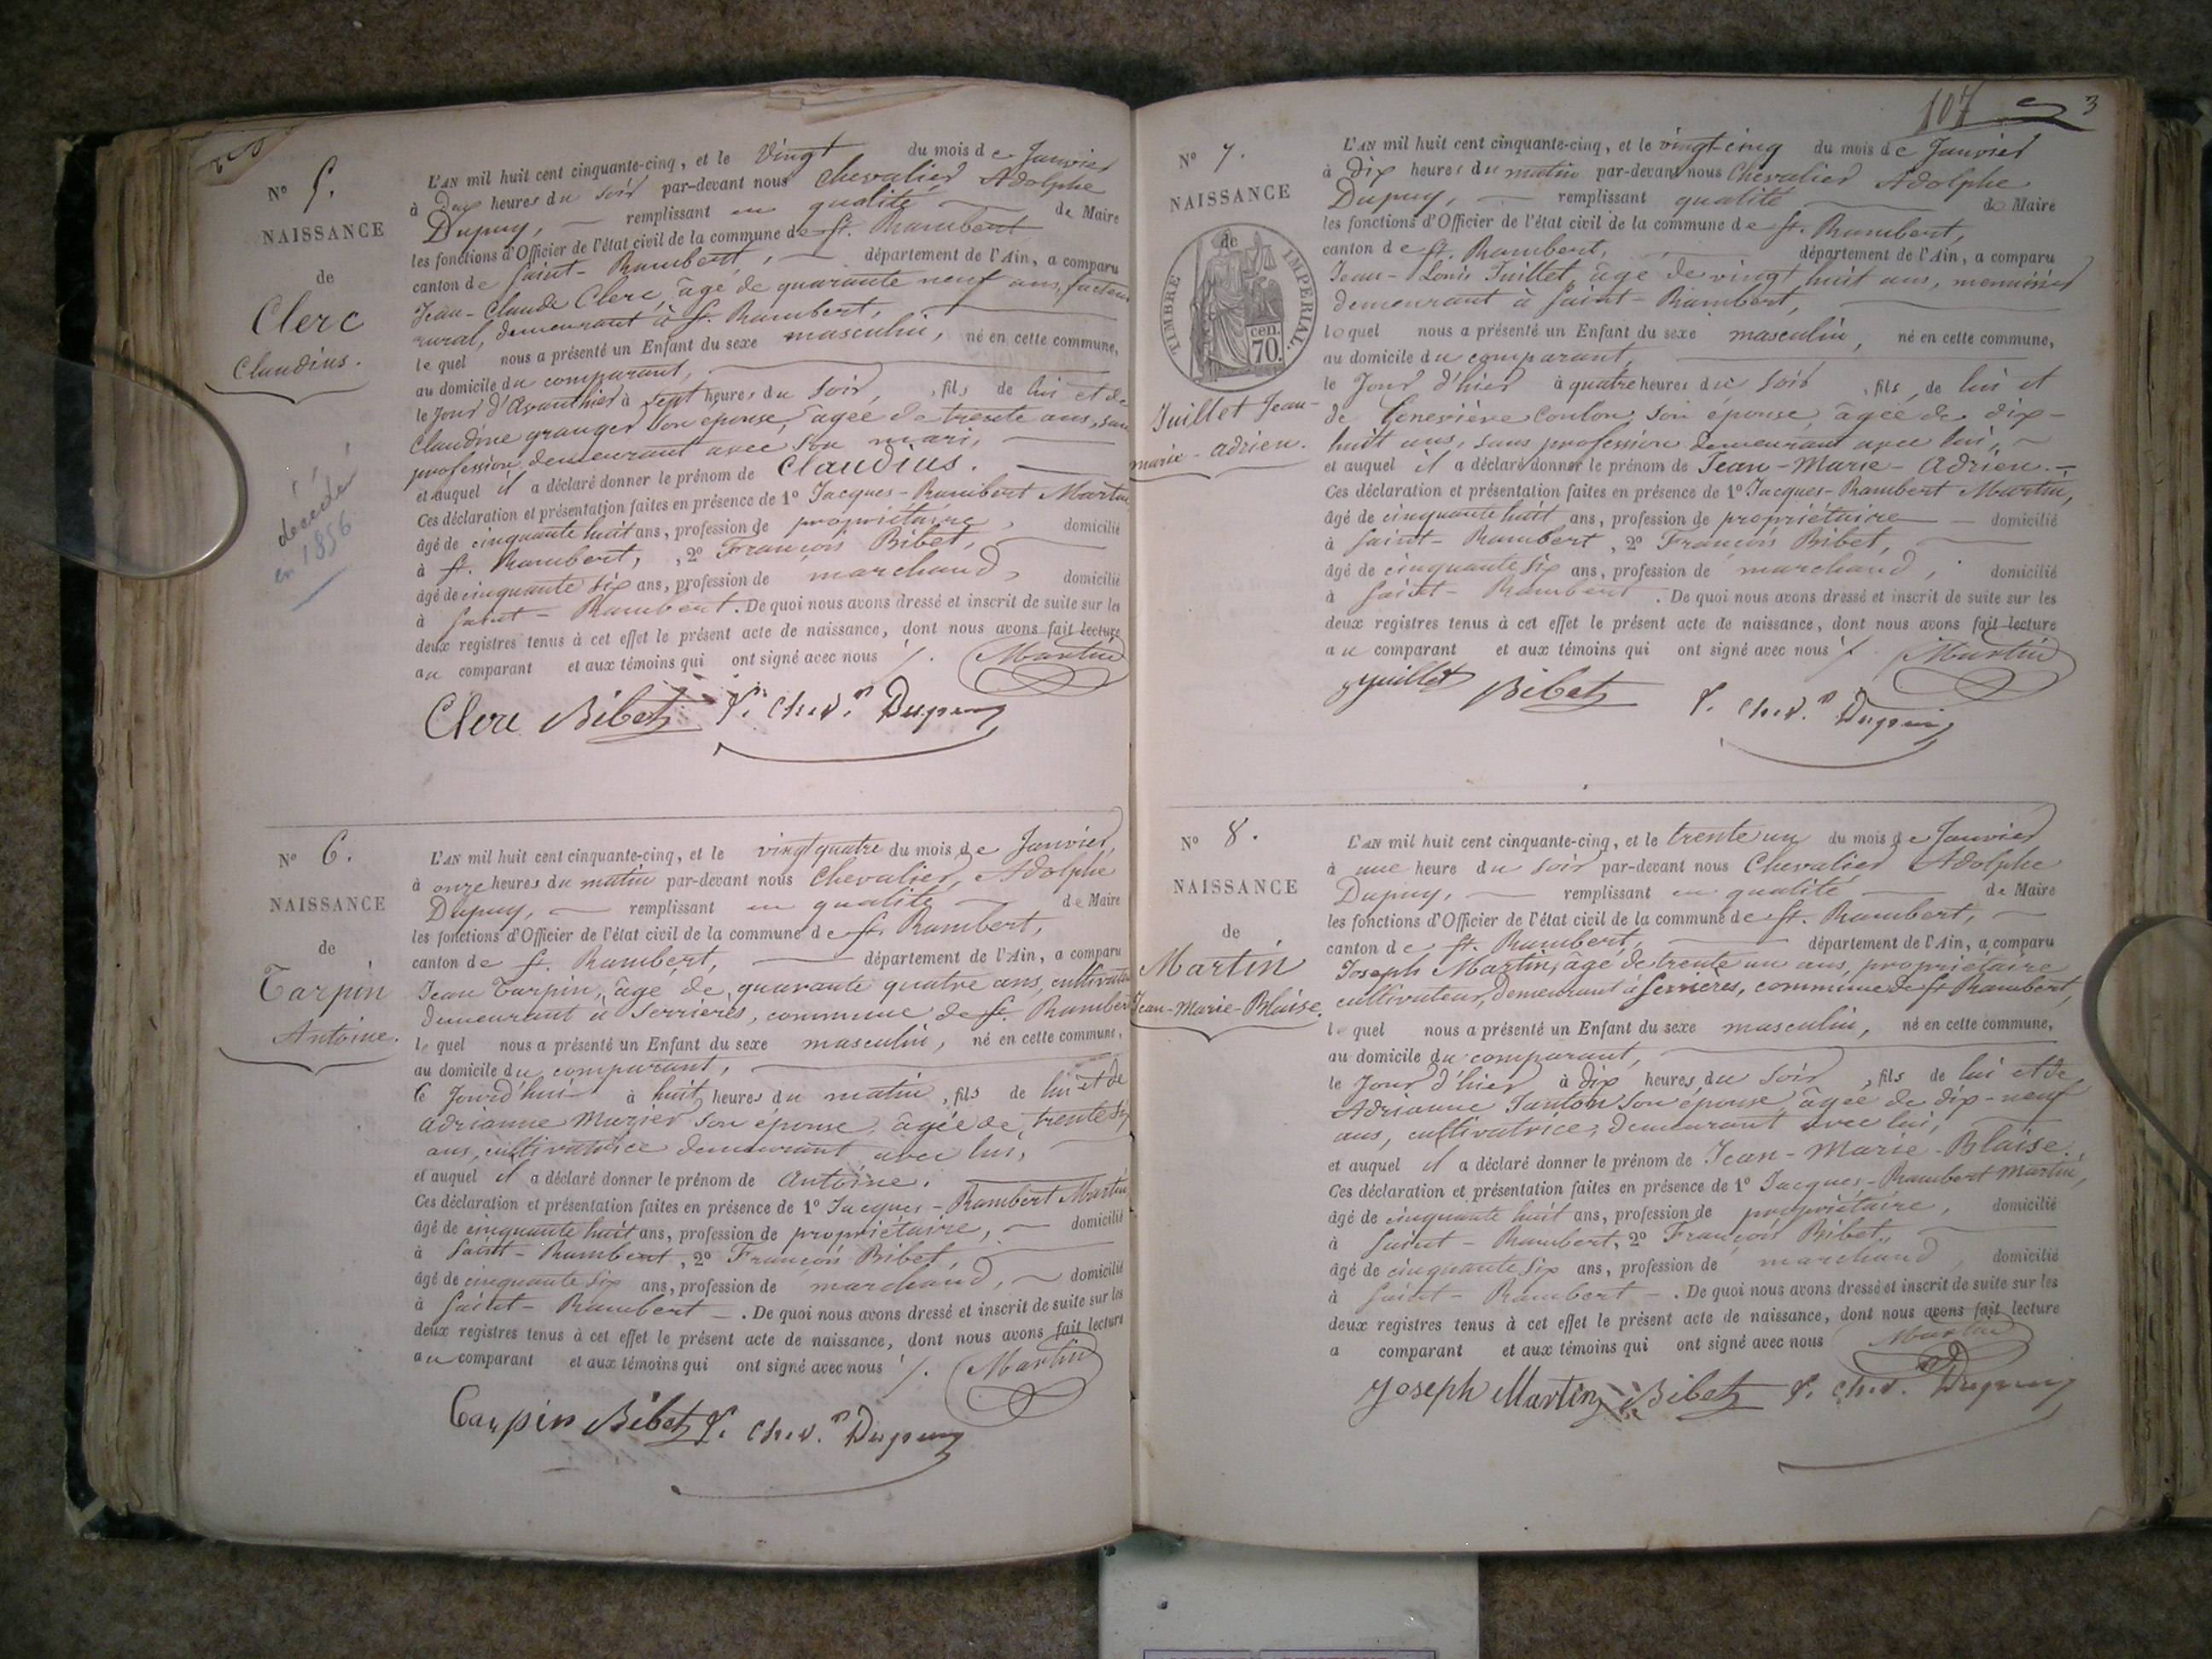 N° 5.
NAISSANCE
de
Clerc
Claudius.
décédé
en 1856
L'AN mil huit cent cinquante-cinq, et le Vingt du mois de Janvier
à Deux heures du soir par-devant nous Chevalier Adolphe
Dupuy, remplissant en qualité de Maire
les fonctions d'Officier de l'état civil de la commune de St. Rambert
canton de Saint-Rambert, département de l'Ain, a comparu
Jean-Claude Clerc, âgé de quarante neuf ans, facteur
rural, demeurant à St. Rambert,
lequel nous a présenté un Enfant du sexe masculin, né en cette commune,
au domicile du comparant,
le Jour d'Avanthier à sept heures du soir, fils de lui et de
Claudine granger son épouse, âgée de trente ans, sans
profession, demeurant avec son mari,
et auquel il a déclaré donner le prénom de Claudius.
Ces déclaration et présentation faites en présence de 1° Jacques-Rambert Martin,
âgé de cinquante huit ans, profession de propriétaire, domicilié
à St. Rambert, 2° François Bibet,
âgé de cinquante six ans, profession de marchand, domicilié
à Saint-Rambert. De quoi nous avons dressé et inscrit de suite sur les
deux registres tenus à cet effet le présent acte de naissance, dont nous avons fait lecture
au comparant et aux témoins qui ont signé avec nous /. Martin
Clerc Bibet Chev. Dupuy
N° 6.
NAISSANCE
de
Tarpin
Antoine.
L'AN mil huit cent cinquante-cinq, et le vingt quatre du mois de Janvier,
à onze heures du matin par-devant nous Chevalier, Adolphe
Dupuy, remplissant en qualité de Maire
les fonctions d'Officier de l'état civil de la commune de St. Rambert,
canton de St. Rambert, département de l'Ain, a comparu
Jean Tarpin, âgé de quarante quatre ans, cultivateur
demeurant à Serrières, commune de St. Rambert
lequel nous a présenté un Enfant du sexe masculin, né en cette commune,
au domicile du comparant,
Ce Jourd'hui à huit heures du matin, fils de lui et de
Adrianne Murier son épouse, âgée de trente six
ans, cultivatrice demeurant avec lui,
et auquel il a déclaré donner le prénom de Antoine.
Ces déclaration et présentation faites en présence de 1° Jacques-Rambert Martin
âgé de cinquante huit ans, profession de propriétaire, domicilié
à Saint-Rambert, 2° François Bibet,
âgé de cinquante six ans, profession de marchand, domicilié
à Saint-Rambert. De quoi nous avons dressé et inscrit de suite sur les
deux registres tenus à cet effet le présent acte de naissance, dont nous avons fait lecture
au comparant et aux témoins qui ont signé avec nous /. Martin
Tarpin Bibet Chev. Dupuy
107 3
N° 7.
NAISSANCE
de
TIMBRE IMPERIAL.
cen.
70.
Juillet Jean-
marie-adrien.
L'AN mil huit cent cinquante-cinq, et le vingt cinq du mois de Janvier
à Dix heures du matin par-devant nous Chevalier Adolphe
Dupuy, remplissant qualité de Maire
les fonctions d'Officier de l'état civil de la commune de St. Rambert,
canton de St. Rambert, département de l'Ain, a comparu
Jean-Louis Juillet, âgé de vingt huit ans, menuisier
demeurant à Saint-Rambert,
lequel nous a présenté un Enfant du sexe masculin, né en cette commune,
au domicile du comparant,
le Jour d'hier à quatre heures du soir, fils de lui et
de Geneviève Coulon, son épouse, âgée de dix-
huit ans, sans profession demeurant avec lui,
et auquel il a déclaré donner le prénom de Jean-Marie-Adrien.
Ces déclaration et présentation faites en présence de 1° Jacques-Rambert Martin,
âgé de cinquante huit ans, profession de propriétaire domicilié
à Saint-Rambert, 2° François Bibet,
âgé de cinquante six ans, profession de marchand, domicilié
à Saint-Rambert. De quoi nous avons dressé et inscrit de suite sur les
deux registres tenus à cet effet le présent acte de naissance, dont nous avons fait lecture
au comparant et aux témoins qui ont signé avec nous /. Martin
Juillet Bibet Chev. Dupuy
N° 8.
NAISSANCE
de
Martin
Jean-Marie-Blaise.
L'AN mil huit cent cinquante-cinq, et le trente un du mois de Janvier
à une heure du soir par-devant nous Chevalier Adolphe
Dupuy, remplissant en qualité de Maire
les fonctions d'Officier de l'état civil de la commune de St. Rambert,
canton de St. Rambert, département de l'Ain, a comparu
Joseph Martin, âgé de trente un ans, propriétaire
cultivateur, demeurant à Serrières, commune de St Rambert,
lequel nous a présenté un Enfant du sexe masculin, né en cette commune,
au domicile du comparant,
le Jour d'hier à dix heures du soir, fils de lui et de
Adrianne Janton son épouse, âgée de dix-neuf
ans, cultivatrice, demeurant avec lui,
et auquel il a déclaré donner le prénom de Jean-Marie-Blaise.
Ces déclaration et présentation faites en présence de 1° Jacques-Rambert Martin,
âgé de cinquante huit ans, profession de propriétaire, domicilié
à Saint-Rambert, 2° François Bibet,
âgé de cinquante six ans, profession de marchand, domicilié
à Saint-Rambert. De quoi nous avons dressé et inscrit de suite sur les
deux registres tenus à cet effet le présent acte de naissance, dont nous avons fait lecture
a comparant et aux témoins qui ont signé avec nous Martin
Joseph Martin Bibet Chev. Dupuy